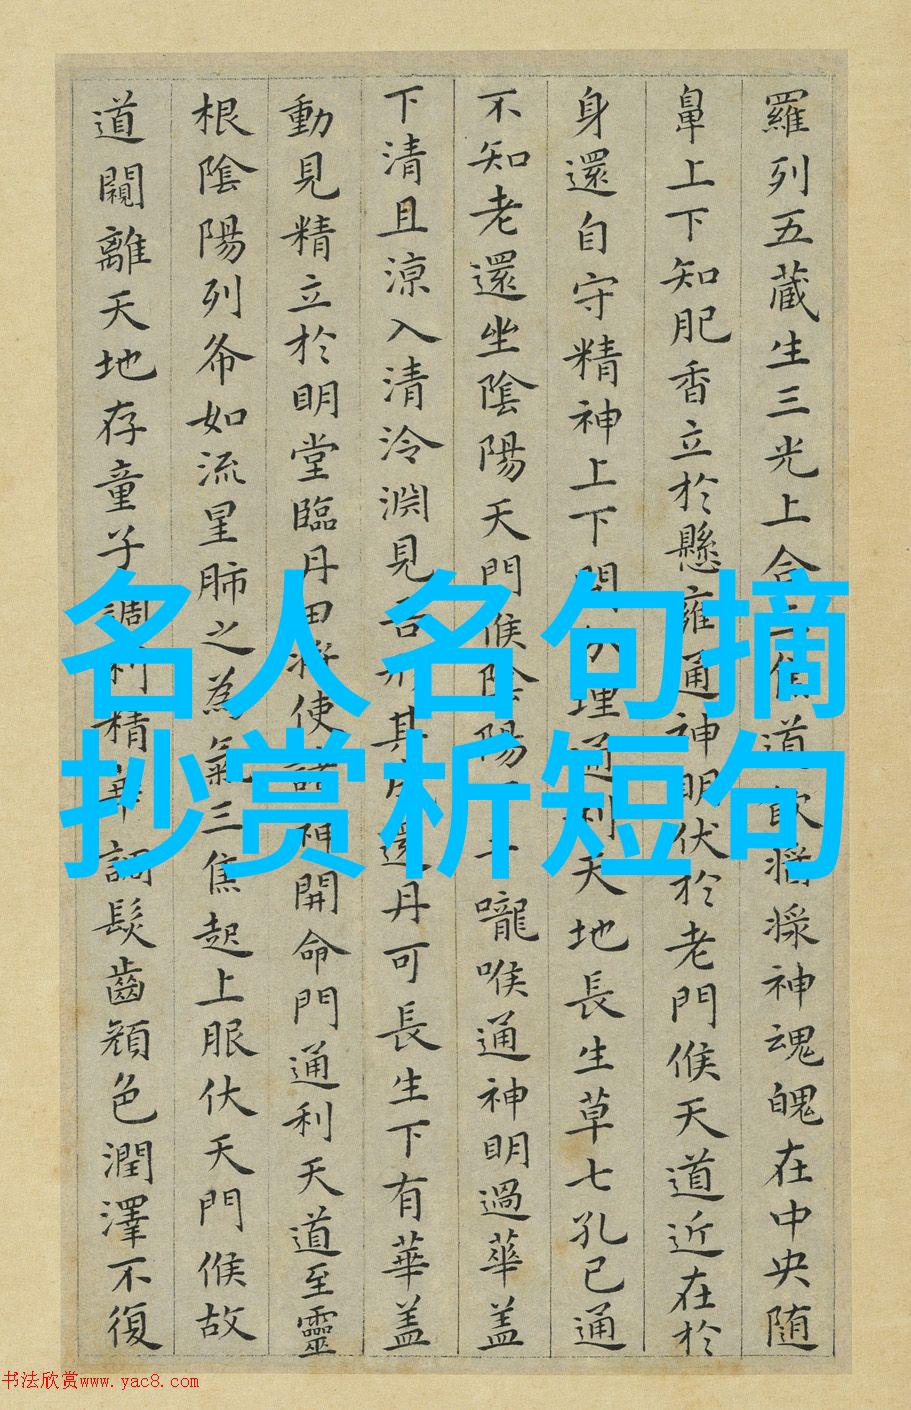 羅列五藏生三光上合
道飲醬漿神魂魄在中央随
鼻上下知肥香立於懸雍通神明伏於老門候天道近在於
身還自守精神上下開
理通利天地長生草七孔已通
不知老還坐陰陽天門候陰陽下
嚨喉通神明過華盖
下清且涼入清泠淵見吾形其成還丹可長生下有華盖
動見精立於明堂臨丹田將使諸神開命門通利天道至靈
根陰陽列布如流星肺之為氣三焦起上服伏天門候故
道闚離天地存童子調利精華調髮齒顏色潤澤不復
名人名句摘
抄赏析短句
书法欣赏www.yac8.com